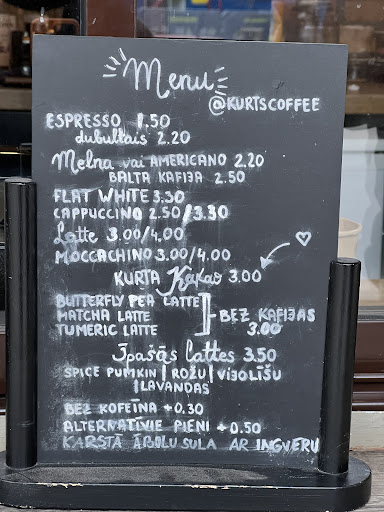 Menu
@KURTSCOFFEE
ESPRESSO 1.50
dubultais 2.20
Melna vai AMERICANO 2.20
BALTA KAFIJA 2.50
FLAT WHITE 3.30
CAPPUCCINO 2.50/3.30
Latte 3.00/4.00
MOCCACHINO 3.00/4.00
KURTA Kakao 3.00
BUTTERFLY PEA LATTE
MATCHA LATTE
TUMERIC LATTE
BEZ KAFIJAS
3.00
Īpašās lattes 3.50
SPICE PUMKIN | ROŽU | VIJOLĪŠU
| LAVANDAS
BEZ KOFEĪNA +0.30
ALTERNATĪVIE PIENI +0.50
KARSTĀ ĀBOLU SULA AR INGVERU